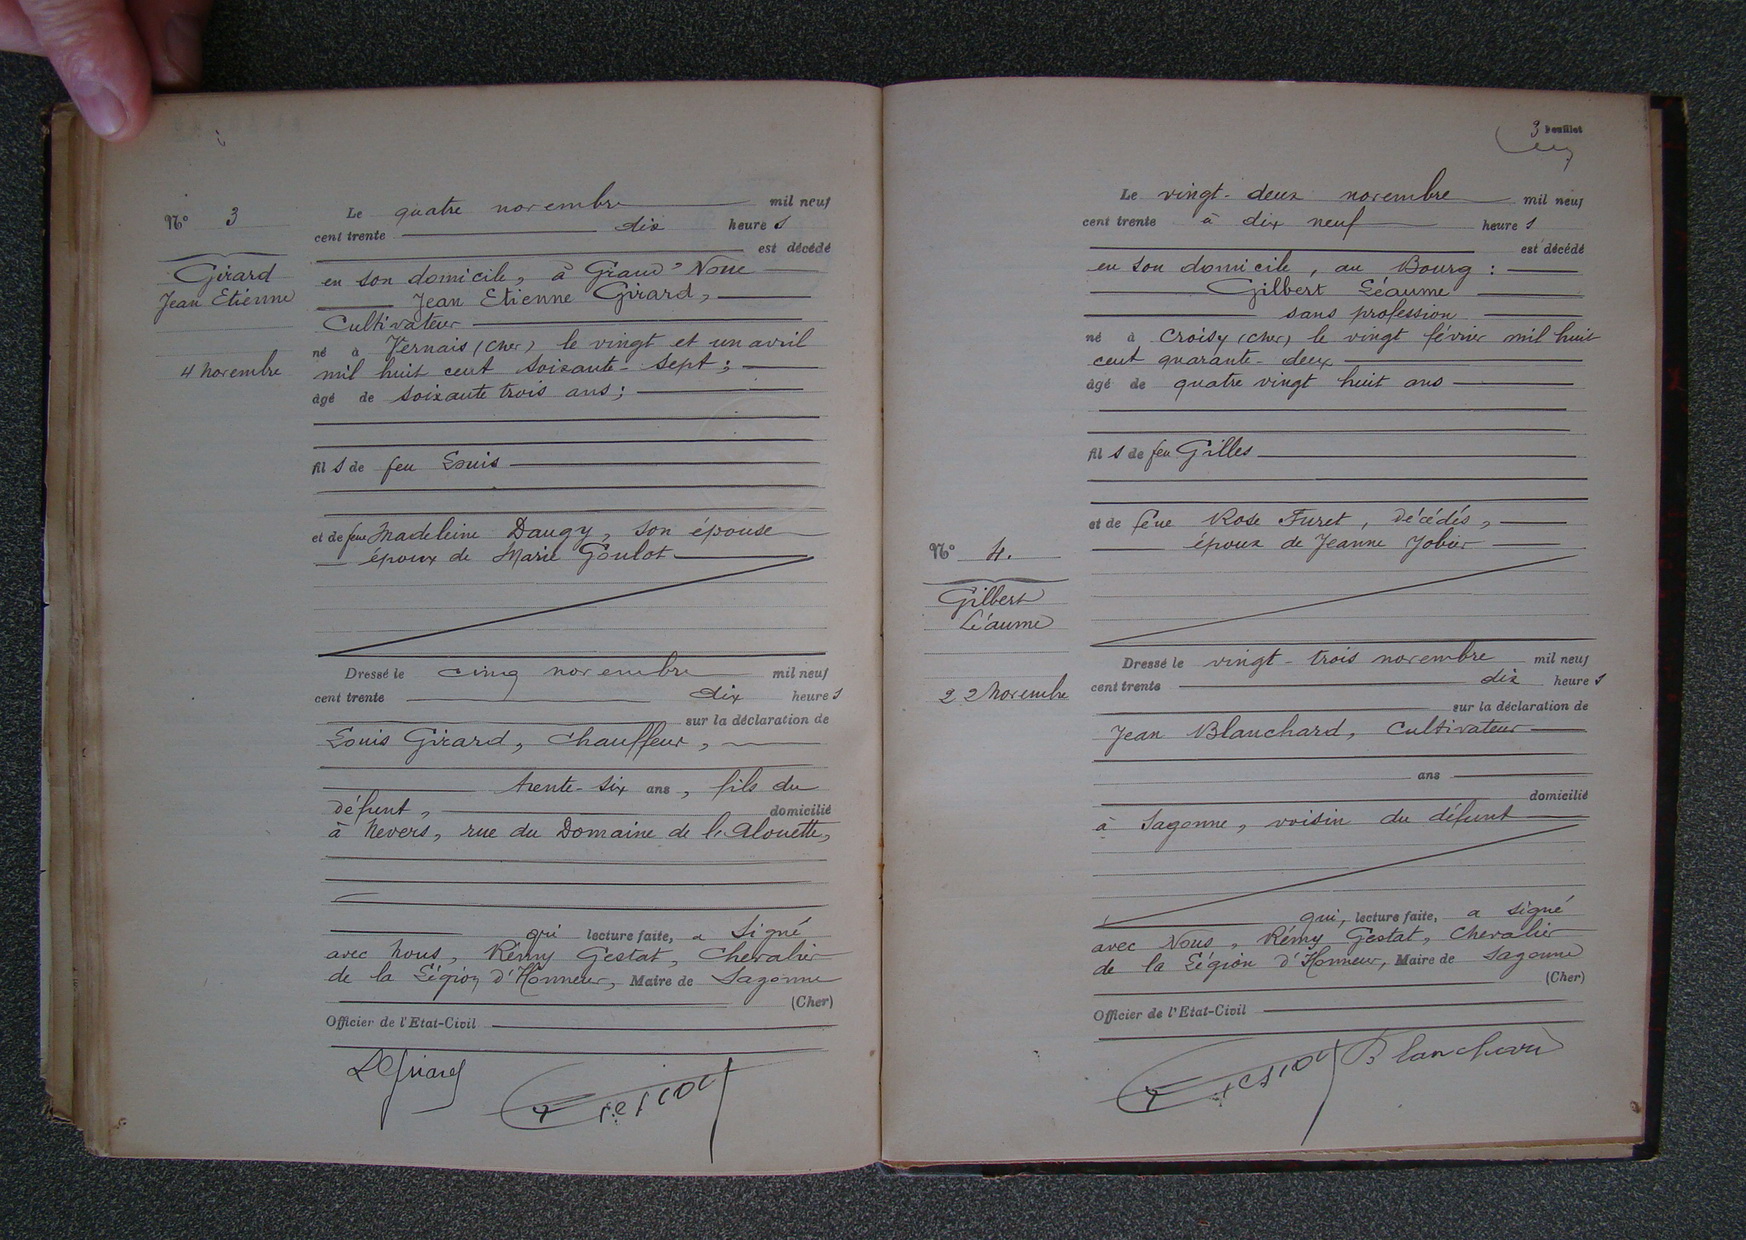 N° 3
Girard
Jean Etienne
4 Novembre
Le quatre novembre mil neuf
cent trente dix heures
est décédé
en son domicile, à Grand' Noue
Jean Etienne Girard,
Cultivateur
né à Vernais (Cher) le vingt et un avril
mil huit cent soixante-sept ;
âgé de soixante trois ans ;
fils de feu Louis
et de feue Madeleine Daugy, son épouse
époux de Marie Goulot
Dressé le cinq novembre mil neuf
cent trente dix heures
sur la déclaration de
Louis Girard, Chauffeur,
trente-six ans, fils du
défunt, domicilié
à Nevers, rue du Domaine de l'Alouette,
qui lecture faite, a signé
avec Nous, Rémy Gestat, Chevalier
de la Légion d'Honneur, Maire de Sagonne
(Cher)
Officier de l'Etat-Civil
LGirard
Gestat
3 Feuillet
N° 4.
Gilbert
Léaume
22 Novembre
Le vingt-deux novembre mil neuf
cent trente à dix neuf heures
est décédé
en son domicile, au Bourg :
Gilbert Léaume
sans profession
né à Croisy (Cher) le vingt février mil huit
cent quarante-deux
âgé de quatre vingt huit ans
fils de feu Gilles
et de feue Rose Furet, décédés,
époux de Jeanne Jobier
Dressé le vingt-trois novembre mil neuf
cent trente dix heures
sur la déclaration de
Jean Blanchard, Cultivateur
ans
domicilié
à Sagonne, voisin du défunt
qui, lecture faite, a signé
avec Nous, Rémy Gestat, Chevalier
de la Légion d'Honneur, Maire de Sagonne
(Cher)
Officier de l'Etat-Civil
Gestat Blanchard